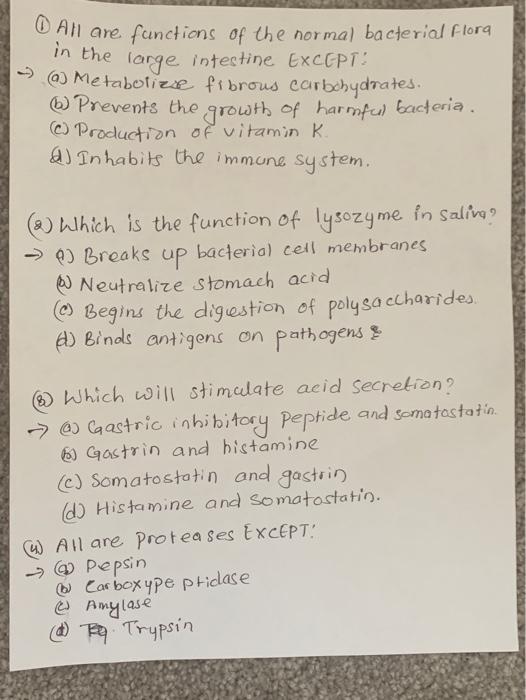 ① All are functions of the normal bacterial flora
in the large intestine EXCEPT:
→ (a) Metabolize fibrous carbohydrates.
(b) Prevents the growth of harmful bacteria.
(c) Production of vitamin K.
(d) Inhabits the immune system.
(2) Which is the function of lysozyme in saliva?
→ a) Breaks up bacterial cell membranes
(b) Neutralize stomach acid
(c) Begins the digestion of polysaccharides.
(d) Binds antigens on pathogens
③ Which will stimulate acid secretion?
→ (a) Gastric inhibitory peptide and somatostatin.
(b) Gastrin and histamine
(c) Somatostatin and gastrin
(d) Histamine and somatostatin.
(4) All are proteases EXCEPT:
→ (a) Pepsin
(b) Carboxype ptidase
(c) Amylase
(d) Trypsin